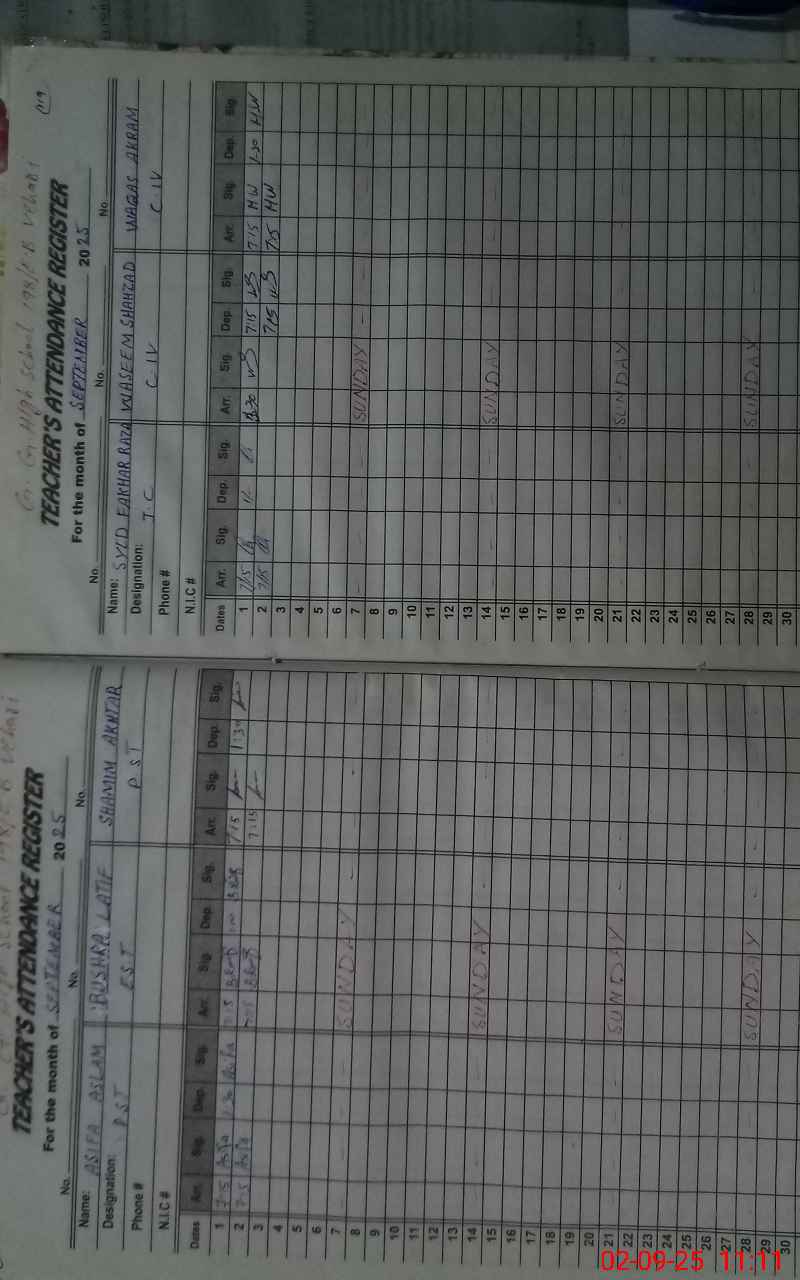 TEACHER'S ATTENDANCE REGISTER
For the month of SEPTEMBER 2025
No. No. No.
Name: ASIFA ASLAM BUSHRA LATIF SHAMIM AKHTAR
Designation: PST EST PST
Phone #
N.I.C #
Dates Arr. Sig. Dep. Sig. Arr. Sig. Dep. Sig. Arr. Sig. Dep. Sig.
1 7:15 1:30
2 7:15
3
4
5
6
7 SUNDAY
8
9
10
11
12
13
14 SUNDAY
15
16
17
18
19
20
21 SUNDAY
22
23
24
25
26
27
28 SUNDAY
29
30
High School 198/E.B Vehari
TEACHER'S ATTENDANCE REGISTER
For the month of SEPTEMBER 2025
No. No. No.
Name: SYED FAKHAR RAZA WASEEM SHAHZAD WAQAS AKRAM
Designation: I.C C IV C IV
Phone #
N.I.C #
Dates Arr. Sig. Dep. Sig. Arr. Sig. Dep. Sig. Arr. Sig. Dep. Sig.
1 7/15 7:15 7:15 MW 1:30 MW
2 7/15 7:15 7:15 MW
3
4
5
6
7 SUNDAY
8
9
10
11
12
13
14 SUNDAY
15
16
17
18
19
20
21 SUNDAY
22
23
24
25
26
27
28 SUNDAY
29
30
02-09-25 11:11